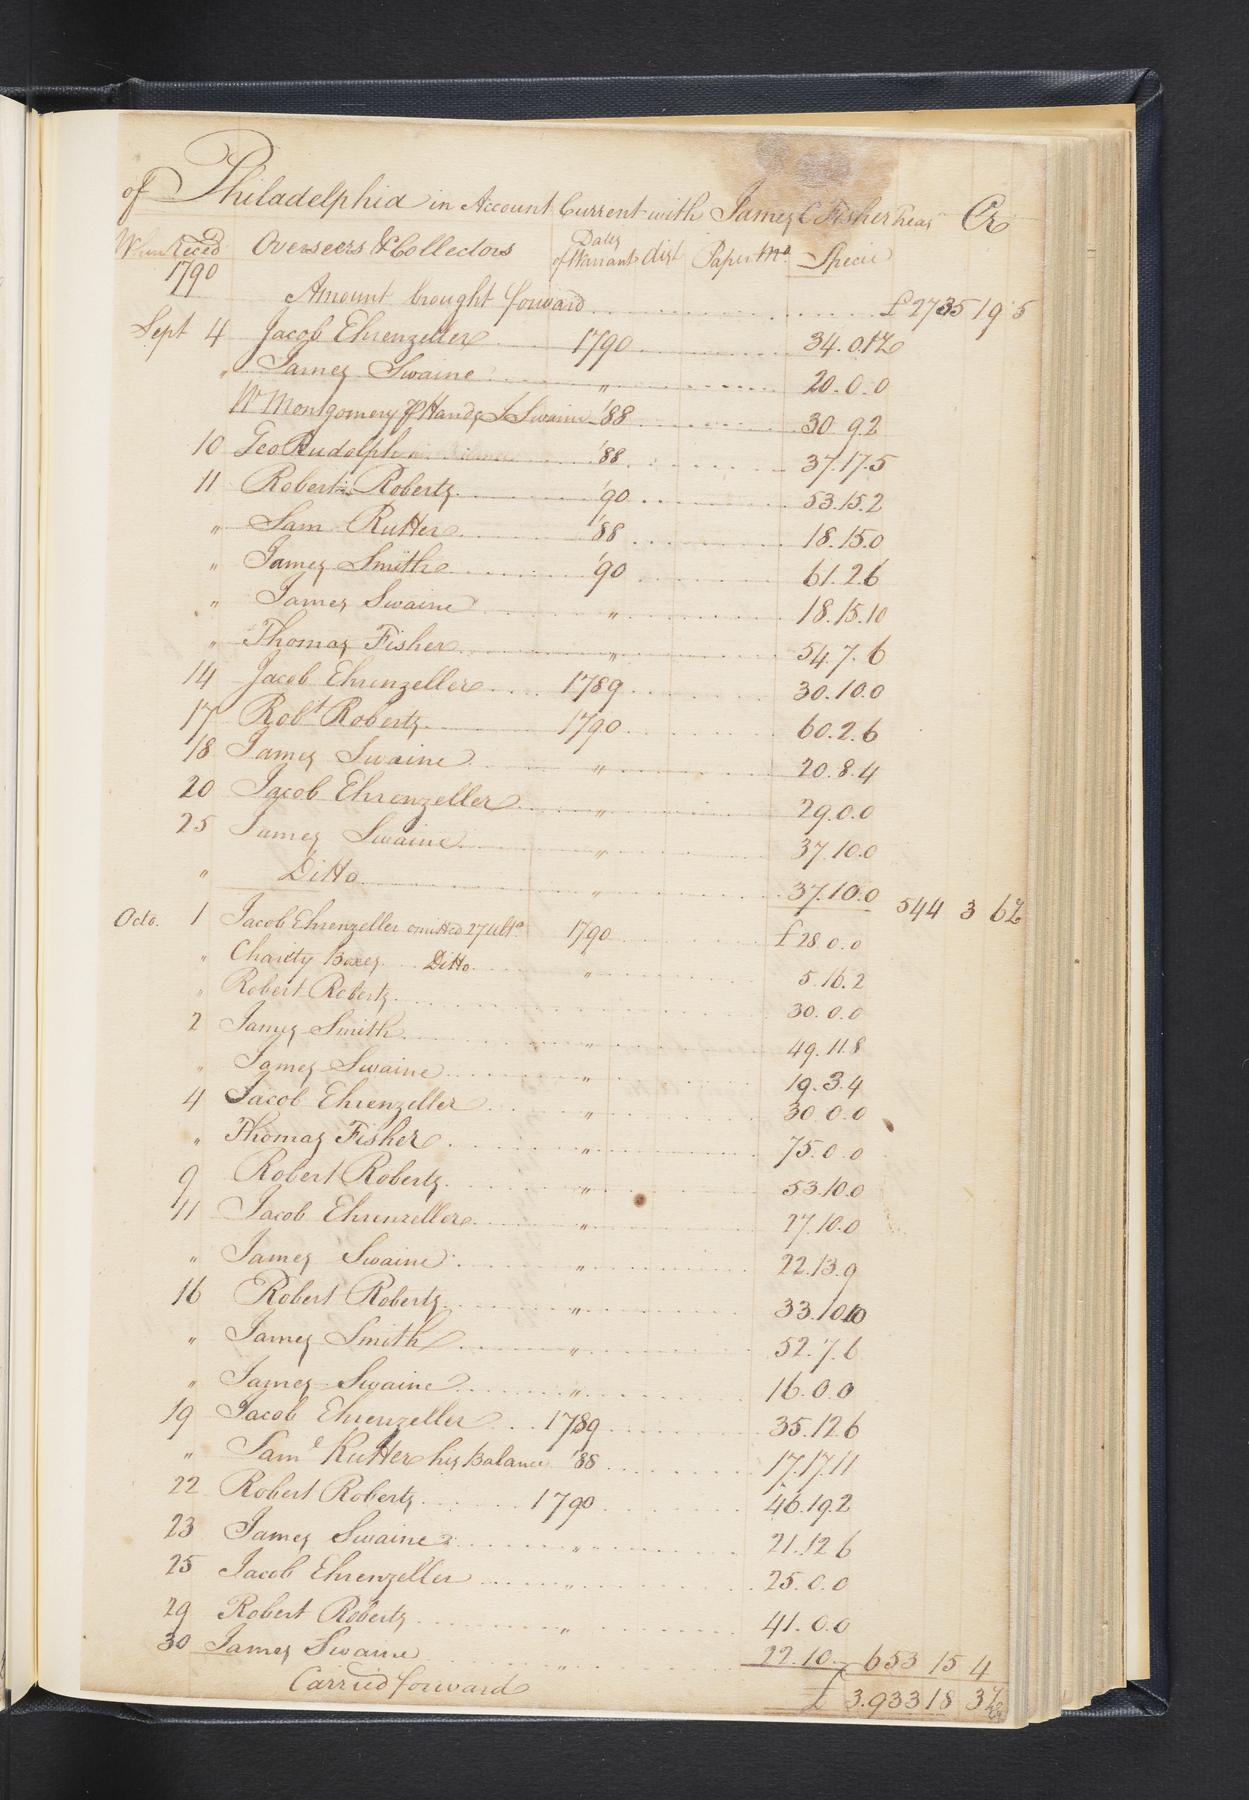 of Philadelphia in Account Current with James C Fisher Treasr Cr
When Reced Overseers & Collectors Dates of Warrants dist Paper Mo. Specie
1790
Amount brought forward £2735 19 5
Sept 4 Jacob Ehrenzeller 1790 34.0.1½
" James Swaine " 20.0.0
Wm Montgomery ⅌ Hands J Swaine '88 30 9 2
10 Geo Rudolph '88 37.17.5
11 Robert Roberts '90 53.15.2
" Sam Rutter '88 18.15.0
" James Smith '90 61.2.6
" James Swaine " 18.15.10
" Thomas Fisher " 54.7.6
14 Jacob Ehrenzeller 1789 30.10.0
17 Robt Roberts 1790 60.2.6
18 James Swaine " 20.8.4
20 Jacob Ehrenzeller " 29.0.0
25 James Swaine " 37.10.0
" Ditto " 37.10.0 544 3 6½
Octo. 1 Jacob Ehrenzeller omitted 27 Ulto 1790 £28.0.0
" Charity Boxes Ditto " 5.16.2
" Robert Roberts 30.0.0
2 James Smith " 49.11.8
" James Swaine " 19.3.4
4 Jacob Ehrenzeller " 30 0.0
" Thomas Fisher " 75.0.0
9 Robert Roberts " 53.10.0
11 Jacob Ehrenzeller " 27.10.0
" James Swaine " 22.13.9
16 Robert Roberts " 33.10.10
" James Smith " 52.7.6
" James Swaine " 16.0.0
19 Jacob Ehrenzeller 1789 35.12.6
" Saml Rutter his Balance '88 17.17.11
22 Robert Roberts 1790 46.19.2
23 James Swaine " 21.12 6
25 Jacob Ehrenzeller " 25.0.0
29 Robert Roberts " 41.0.0
30 James Swaine " 22.10.- 653 15 4
Carried forward £ 3.933 18 3½